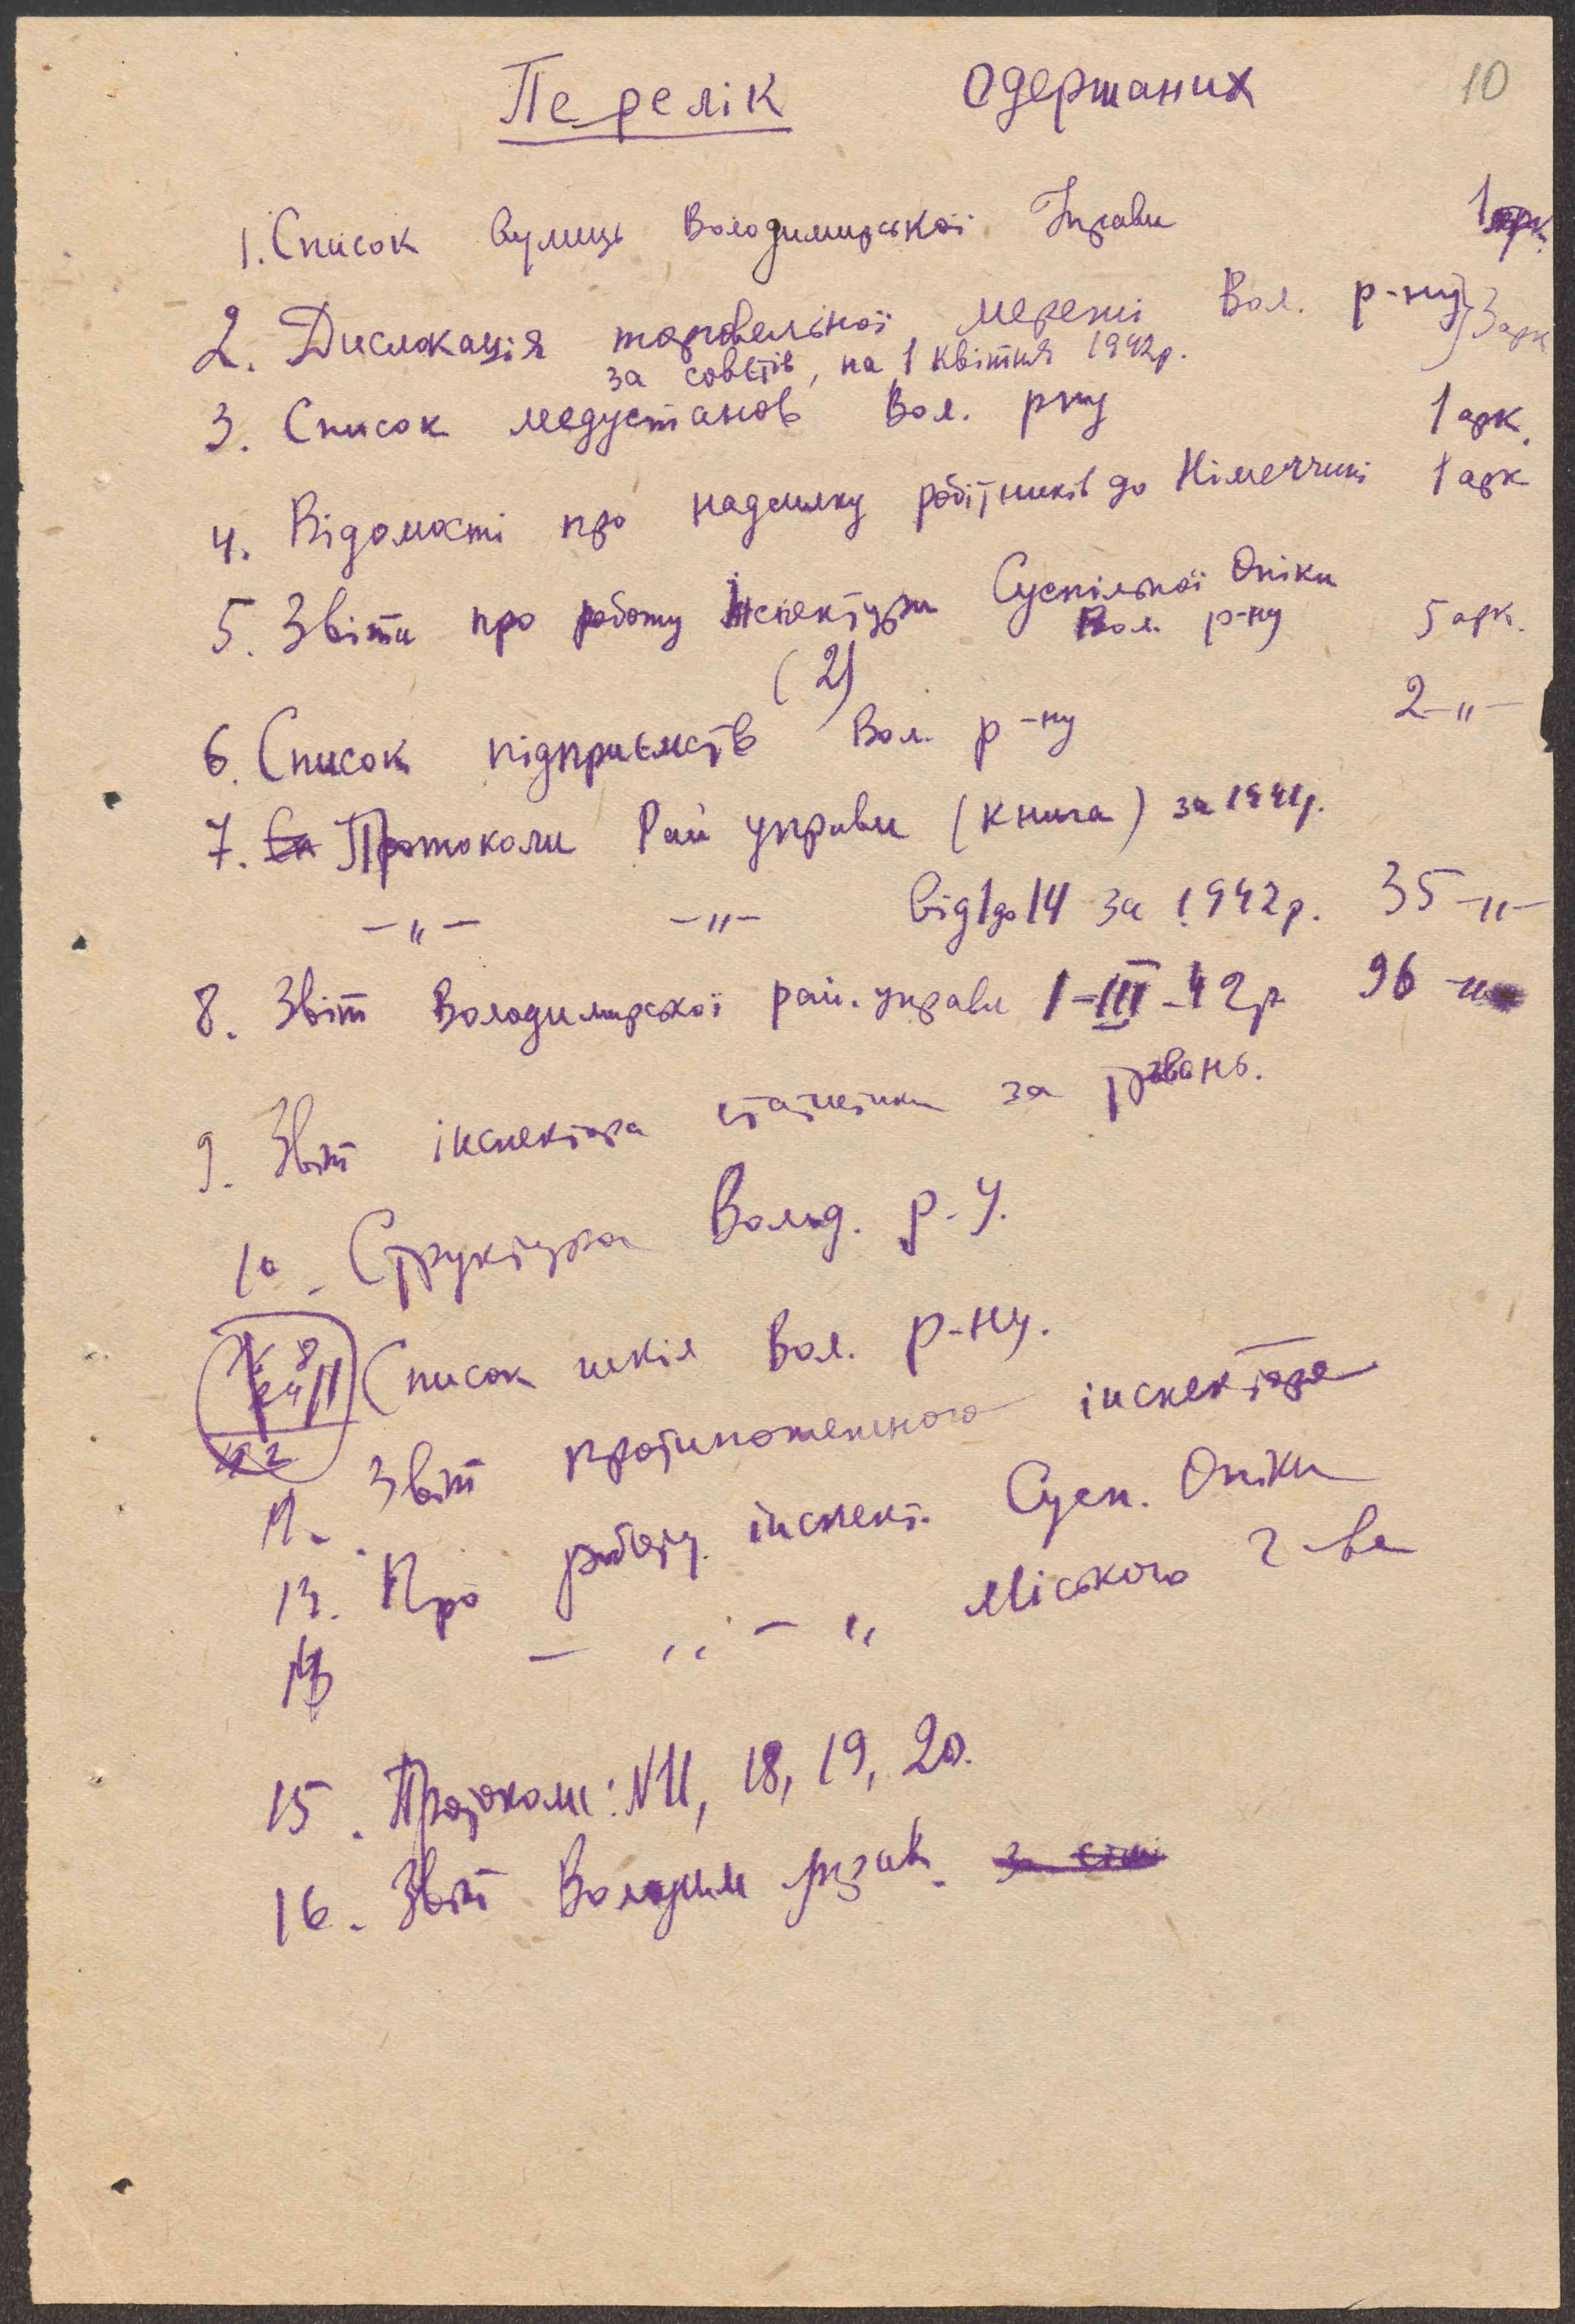 10
Перелік одержаних
1. Список вулиць Володимирської Управи 1 арк.
2. Дислокація торговельної мережі Вол. р-ну 3 арк
за совєтів, на 1 квітня 1942р.
3. Список медустанов Вол. рну 1 арк.
4. Відомості про надсилку робітників до Німеччини 1 арк
5. Звіти про роботу Інспектури Суспільної Опіки
Вол. р-ну 5 арк.
(2)
6. Список підприємств Вол. р-ну 2 -"-
7. Протоколи Рай управи (книга) за 1941р.
-"- -"- від 1 до 14 за 1942р. 35 -"-
8. Звіт Володимирської рай. управи 1-III-42р 96 -"-
9. Звіт інспектора статистики за
10. Структура Волод. р. У.
Список шкіл Вол. р-ну.
Звіт протипожежного інспектора
13. Про роботу інспект. Сусп. Опіки
- " - " Міського г-ва
15. Протоколи: N 11, 18, 19, 20.
16. Звіт Володим